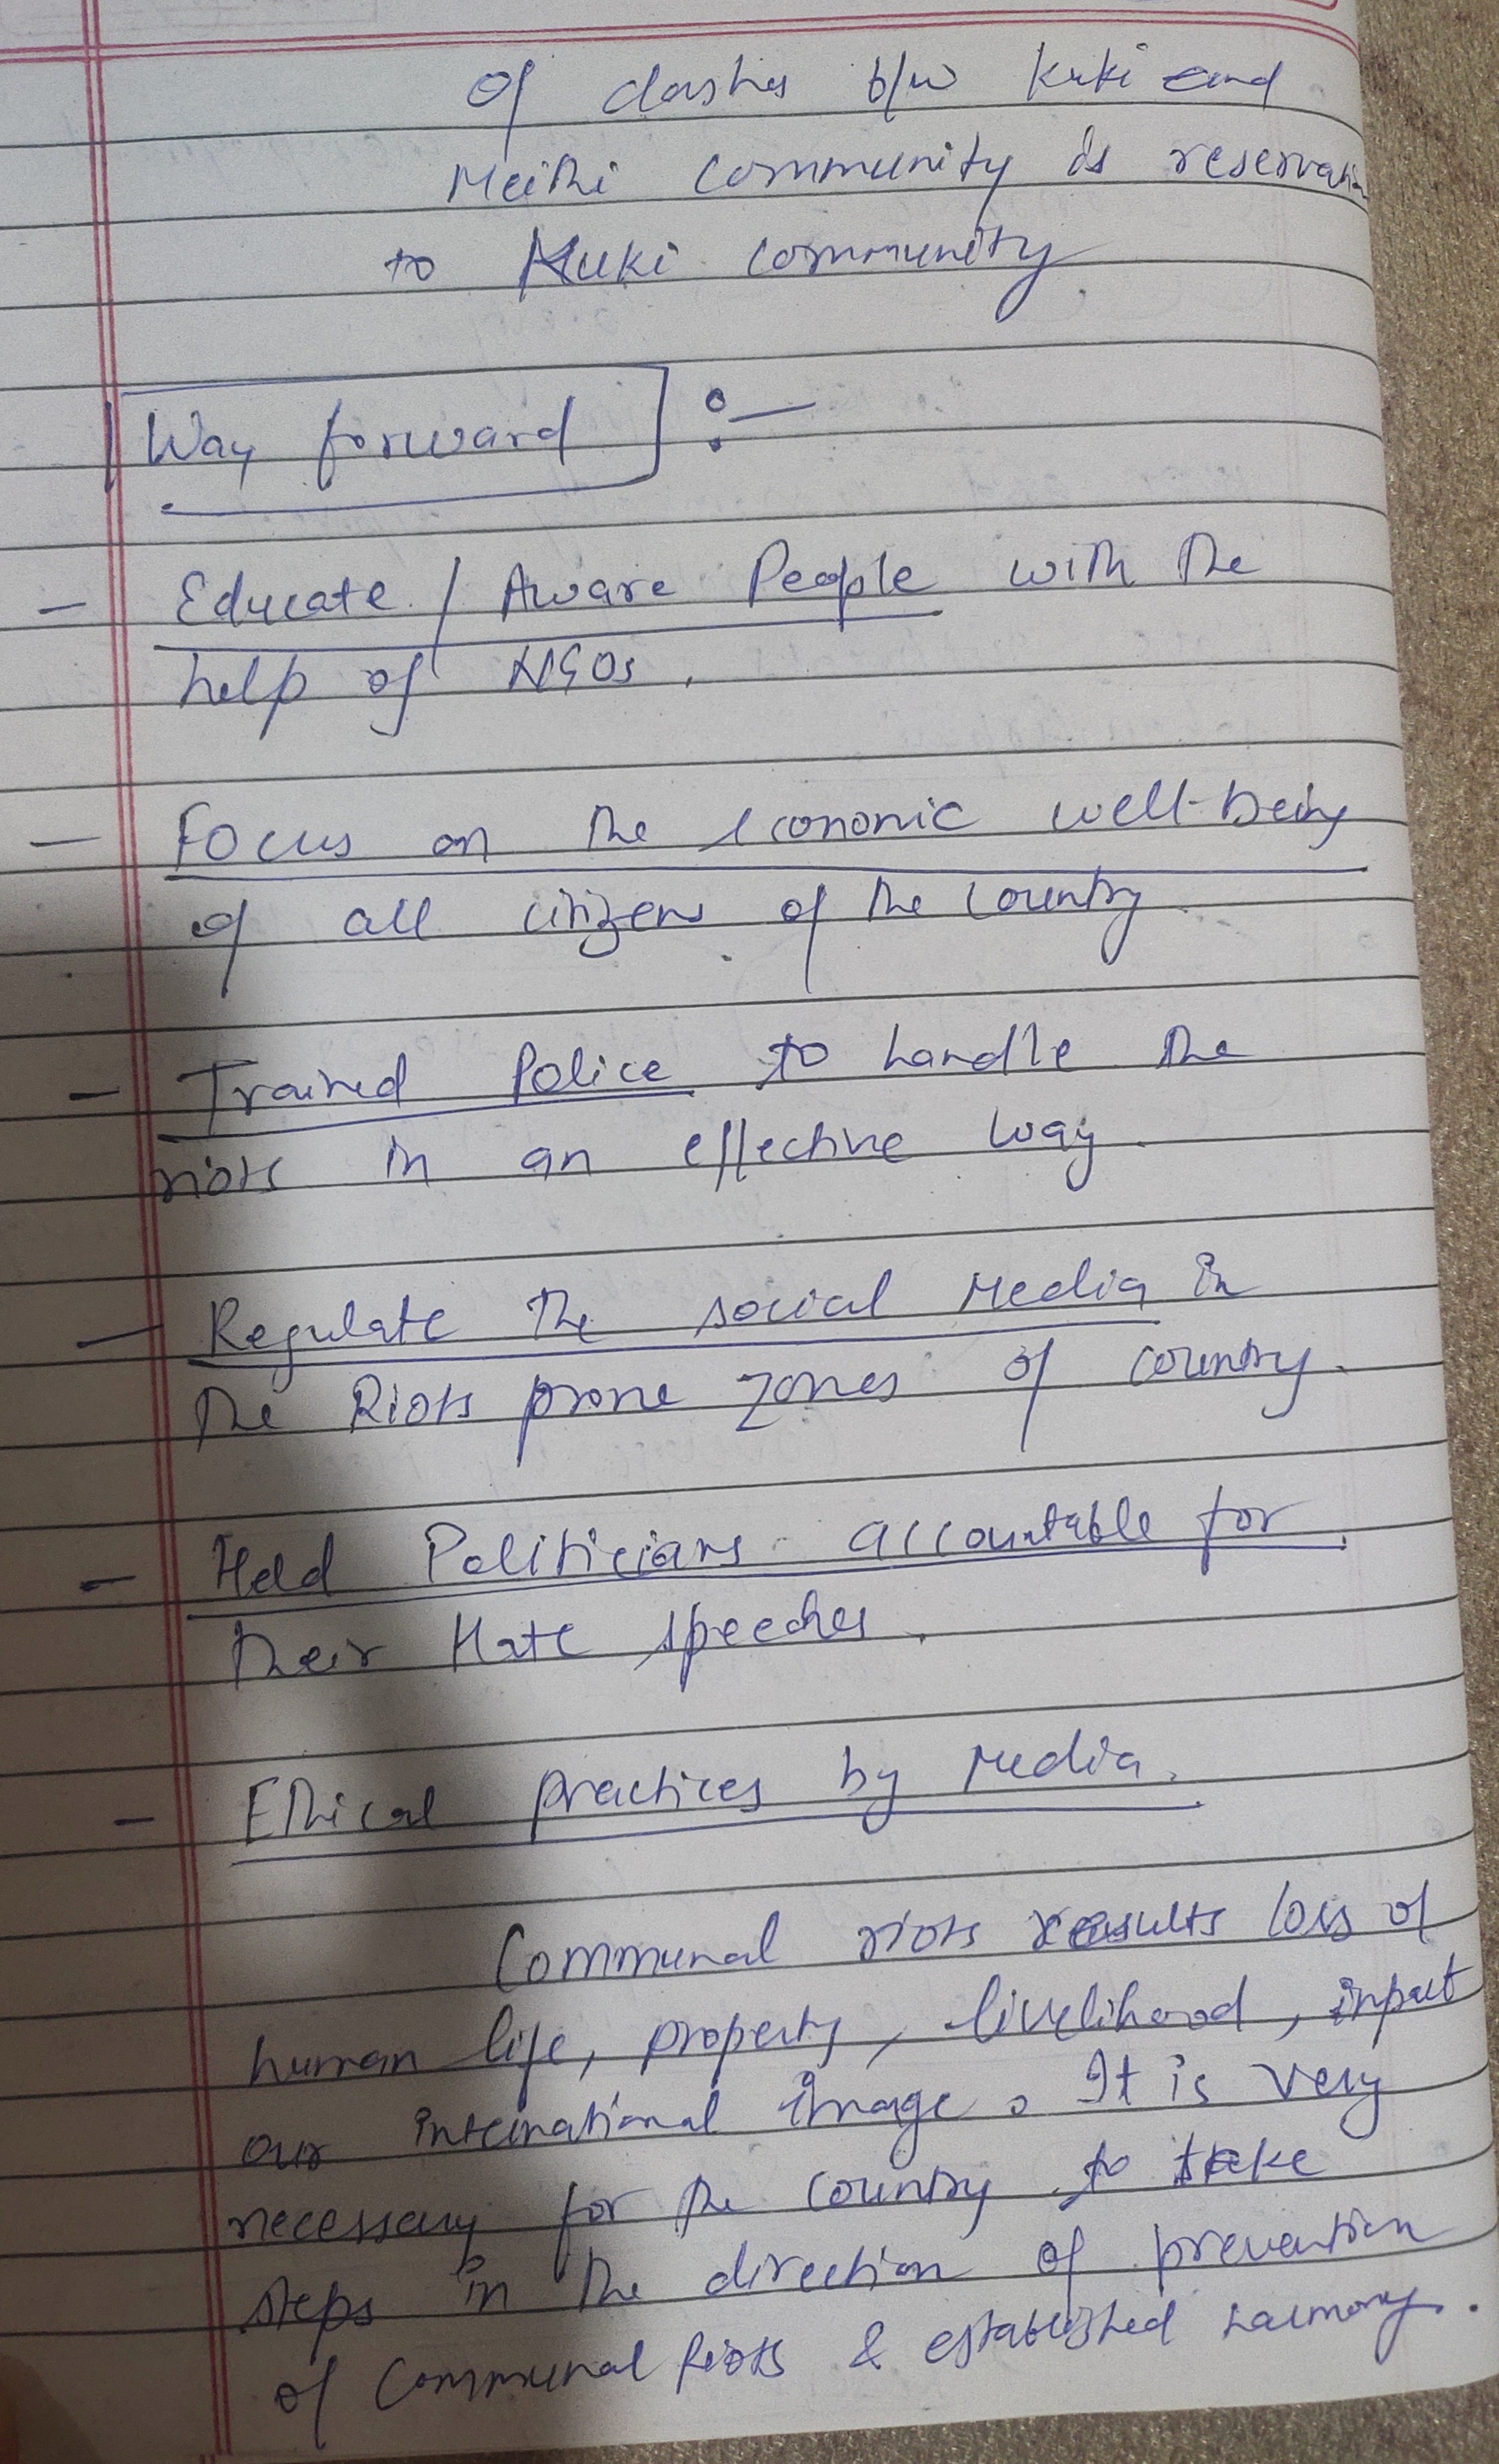 of clashes b/w Kuki and
Meithi community is reservation
to Kuki community
Way forward :-
- Educate / Aware People with the
help of NGOs.
- Focus on the economic well-being
of all citizens of the country.
- Trained Police to handle the
riots in an effective way.
- Regulate the social Media in
the Riots prone zones of country.
- Held Politicians accountable for
their Hate speeches.
- Ethical practices by Media.
Communal riots results loss of
human life, property, livelihood, impact
our international image. It is very
necessary for the country to take
steps in the direction of prevention
of communal Riots & established harmony.